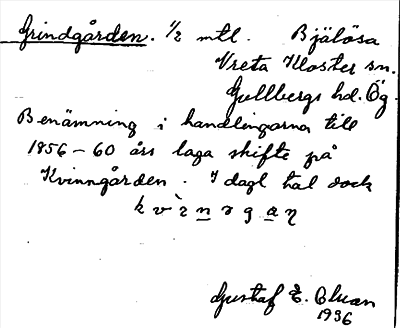 Grindgården. 1/2 mtl. Bjälösa
Vreta Kloster sn.
Gullbergs hd. Ög.
Benämning i handlingarna till
1856-60 års laga skifte på
Kvinngården. I dagl tal dock
Gustaf E.
1936